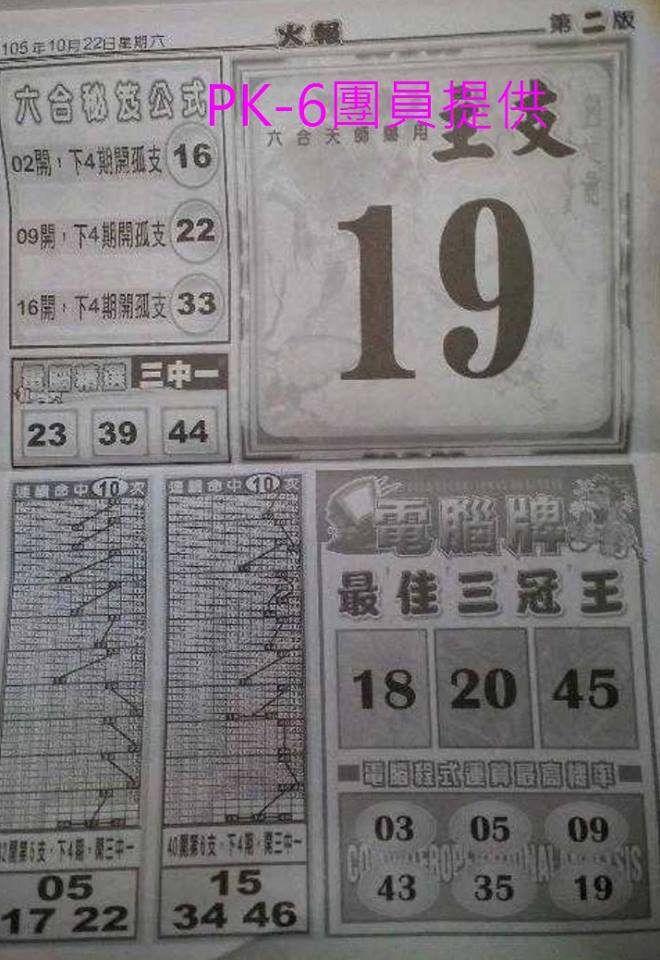 105年10月22日星期六
火報
第二版
PK-6團員提供
六合秘笈公式
02開，下4期開孤支 16
09開，下4期開孤支 22
16開，下4期開孤支 33
六合天師專用
支
19
電腦精選 三中一
23 39 44
連續命中10次
連續命中10次
開第5支，下4期，開三中一
05
17 22
40開第6支，下4期，開三中一
15
34 46
電腦牌
最佳三冠王
18 20 45
電腦程式運算最高機率
03 05 09
43 35 19